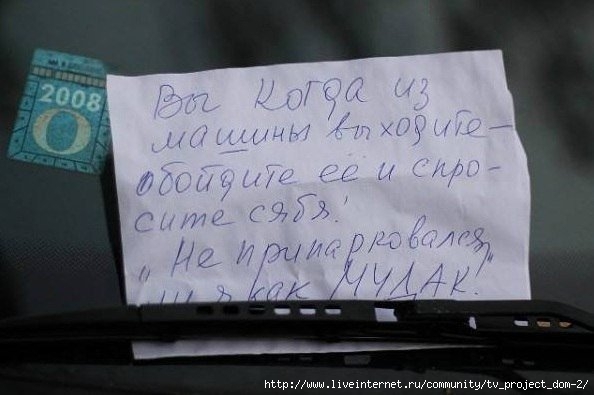 2008
O
Вы когда из
машины выходите—
обойдите её и спро-
сите сябя!
„Не припарковался
ли я как МУДАК!"
http://www.liveinternet.ru/community/tv_project_dom-2/